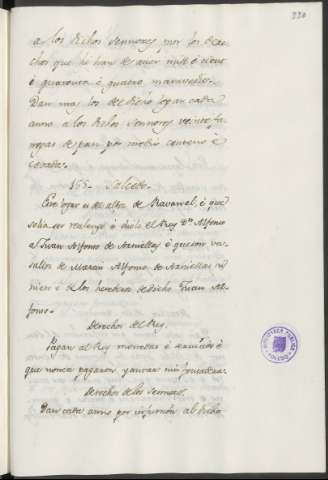 220
a los dichos Sennores por los dere-
chos que hi han de aver mill é cient
é quarenta é quatro maravedis.
Dan mas los del dicho logar cada
anno a los dichos Sennores veinte fa-
negas de pan por medio centeno é
cebada.
165. Salcedo.
Este logar es del alfoz de Ravanal, é que
solia ser realengo é diolo el Rey Dn. Alfonso
al Juan Alfonso de é que son va-
sallos de Martin Alfonso de
é de los herederos del dicho Juan Al-
fonso.
Derechos del Rey.
Pagan al Rey monedas é servicios é
que nunca pagaron yantar nin fonsadera.
Derechos de los Sennores.
Dan cada anno por infurción al dicho
BIBLIOTECA PUBLICA
TOLEDO